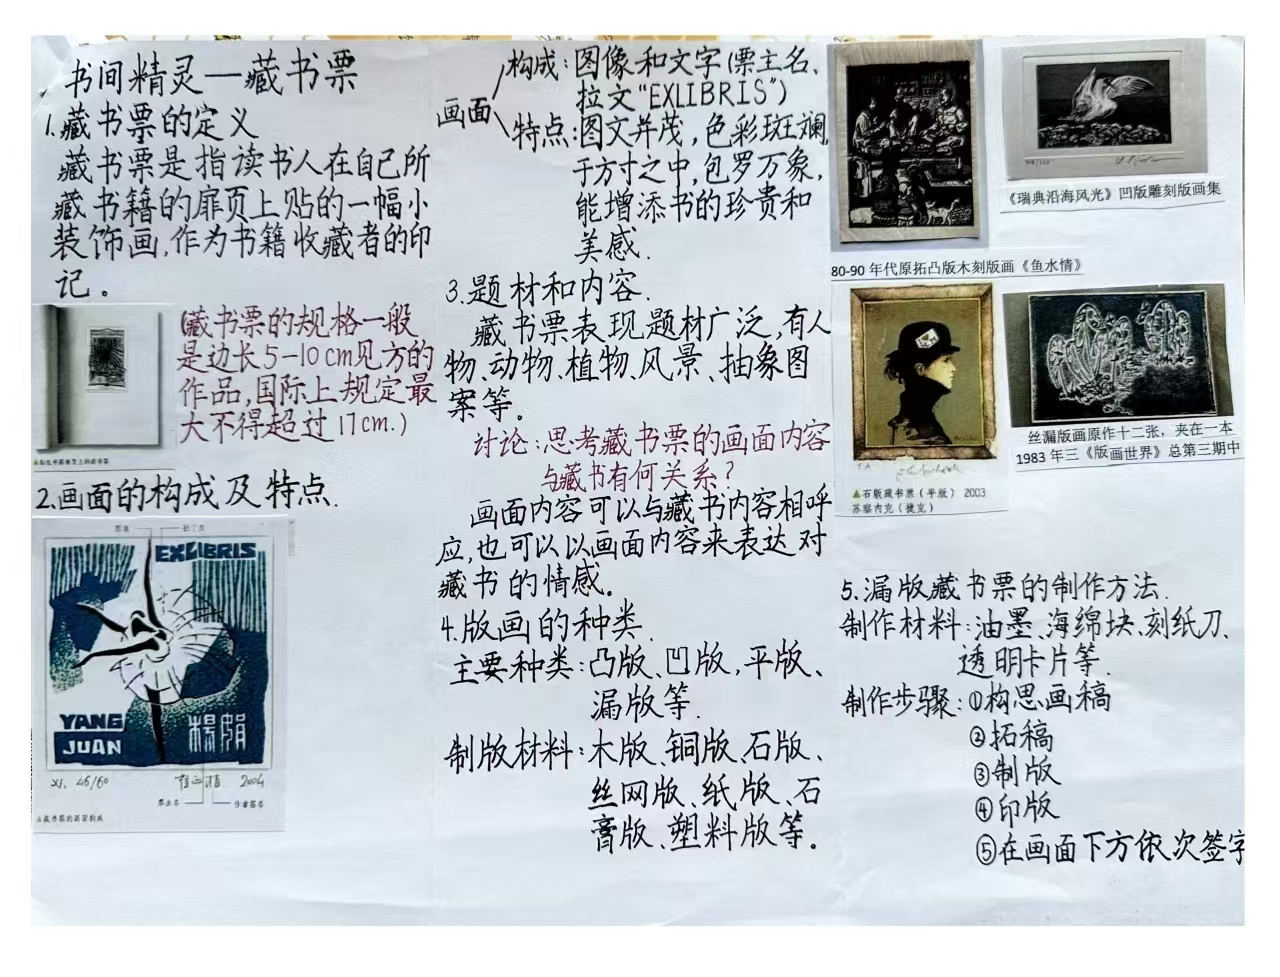 书间精灵—藏书票
1.藏书票的定义
藏书票是指读书人在自己所
藏书籍的扉页上贴的一幅小
装饰画,作为书籍收藏者的印
记。
(藏书票的规格一般
是边长5-10cm见方的
作品,国际上规定最
大不得超过17cm.)
2.画面的构成及特点.
EXLIBRIS
YANG
JUAN
楊娟
XI. 46/60
2004
票主名
作者签名
▲藏书票的画面构成
画面
构成:图像和文字(票主名、
拉文“EXLIBRIS”)
特点:图文并茂,色彩斑斓,
于方寸之中,包罗万象,
能增添书的珍贵和
美感.
3.题材和内容.
藏书票表现题材广泛,有人
物、动物、植物、风景、抽象图
案等。
讨论:思考藏书票的画面内容
与藏书有何关系?
画面内容可以与藏书内容相呼
应,也可以以画面内容来表达对
藏书的情感。
4.版画的种类.
主要种类:凸版、凹版,平版、
漏版等.
制版材料:木版、铜版、石版、
丝网版、纸版、石
膏版、塑料版等。
《瑞典沿海风光》凹版雕刻版画集
80-90年代原拓凸版木刻版画《鱼水情》
▲石版藏书票(平版) 2003
苏察内克(捷克)
丝漏版画原作十二张,夹在一本
1983年三《版画世界》总第三期中
5.漏版藏书票的制作方法.
制作材料:油墨、海绵块、刻纸刀、
透明卡片等.
制作步骤:①构思画稿
②拓稿
③制版
④印版
⑤在画面下方依次签字